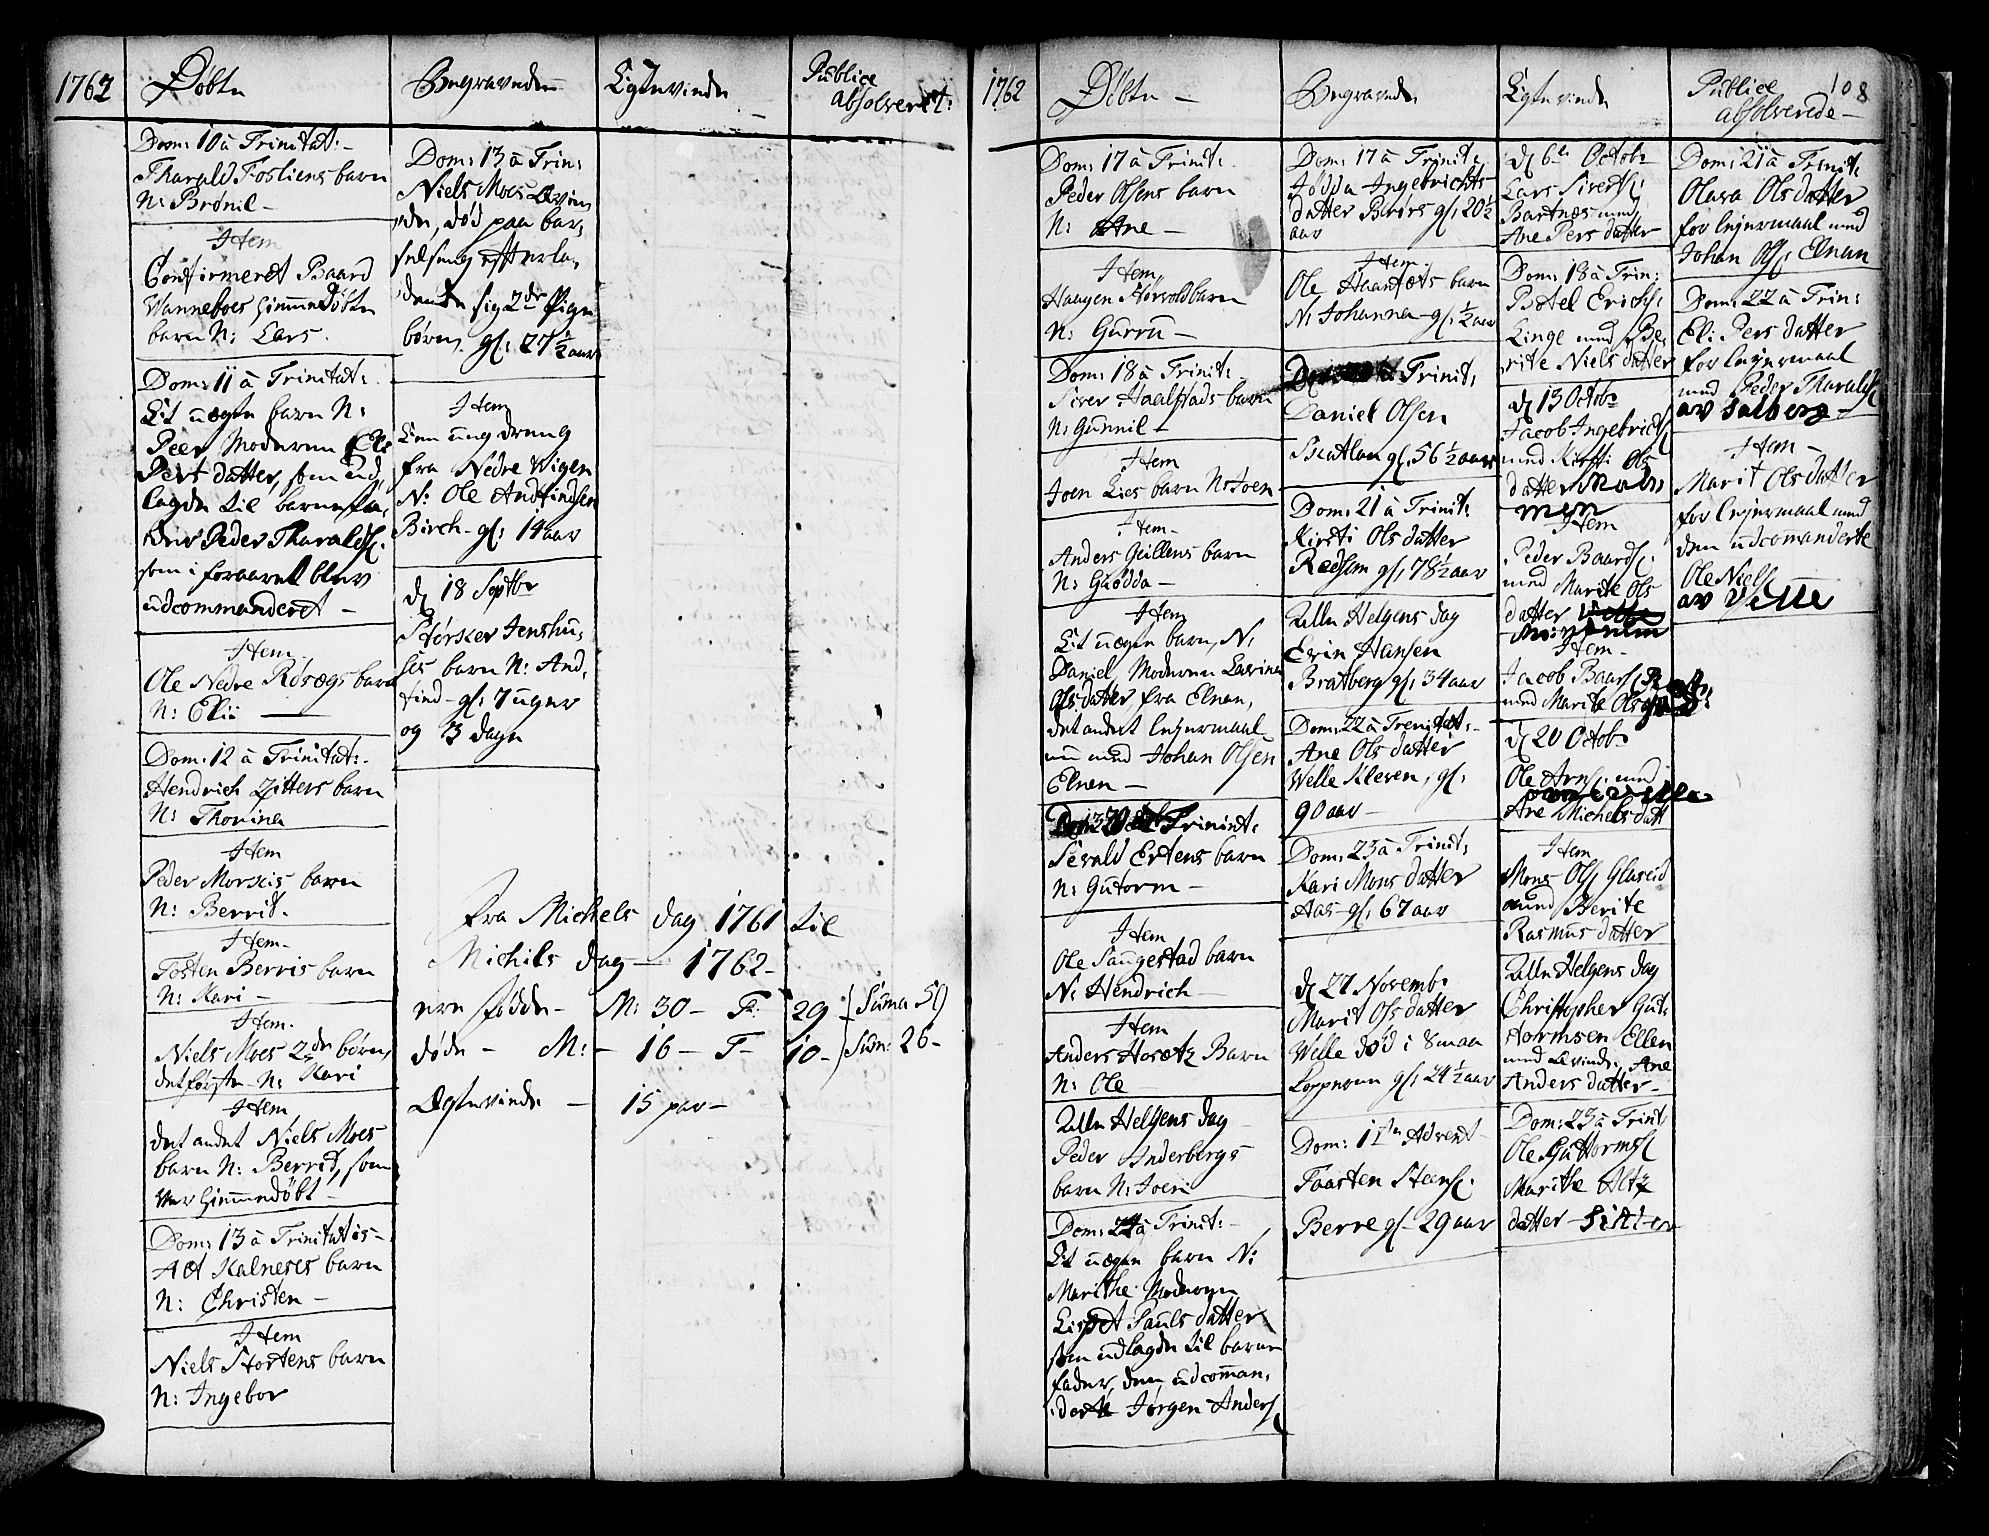 1762
Døbte
Dom: 10 â Trinitat:
Tharald Fosliens barn
N: Brønil -
Item
Confirmeret Baard
Wanneboes hiemmedøbte
barn N: Lars.
Dom: 11 â Trinitat:
Et uægte barn N:
Peer Moderen Eli
Pers datter, som ud,
lagde til barnefa,
der Peder Tharalds:
som i foraaret blev
udcommanderet -
Item
Ole Nedre Røsægs barn
N: Elii
Dom: 12 â Trinitat:
Hendrich Zitters barn
N: Thorina
Item
Peder Morskis barn
N: Berrit.
Item-
Tosten Berris barn
N: Kari -
Item.
Niels Moes 2de børn,
det første N: Kari
Item
det andet Niels Moes
barn N: Berrit, som
var hiemmedøbt -
Dom: 13 â Trinitatis -
Kalneses barn
N: Christen -
Item
Niels Stortens barn
N: Ingebor
Begravede
Dom: 13 â Trin:
Niels Moes Qvin,
de, død paa bar,
selseng efterla,
dende sig 2de Pige
børn. gl: 27 1/2 aar
Item
Een ung dreng
fra Nedre Wigen
N: Ole Andfindsen
Birch - gl: 14 aar
d 18 Septbr
Størker Jenshu,
ses barn N: And,
find - gl: 7 uger
og 3 dage
Egtevinde
Publice
absolveret:
fra Michels dag 1761 til
Michils dag - 1762 -
ere fødde - M: 30 - F: 29 - Suma 59
døde - M: - 16 - F - 10 - Sum: 26 -
Ægtevinde - 15 par -
1762
Døbte -
Dom: 17 â Trinit:
Peder Olsens barn
N: Ane -
Item,
Haagen Størvold barn
N: Gurru -
Dom: 18 â Trinit:
Siver Haalstads barn
N: Gunnil -
Item
Joen Lies barn N: Joen
Item -
Anders Gullens barn
N: Giødda -
Item
Et uægte barn, N:
Daniel, Moderen Lavrina
Ols datter fra Elnen,
det andet leyermaal
nu med Johan Olsen
Elnen -
Trinit:
Sevald Ertens barn
N: Gutorm -
Item
Ole Saugestad barn
N: Hendrich -
Item
Anders Hosetz Barn
N: Ole
Alle Helgens dag
Peder Inderbergs
barn N: Joen
Dom: 22 â Trinit: -
Et uægte barn N:
Marithe Moderen
Lispet Pauls datter
som udlagde til barne
fader, den udcoman,
derte Jørgen Anders:
Begravede
Dom: 17 â Trinit:
Jødda Ingebrichts
datter Barørs gl: 20 1/2
aar
Item.
Ole Haarfots barn
N: Johanna - gl: 1/2 aar
Trinit:
Daniel Olsen
Skatlan gl: 56 1/2 aar
Dom: 21 â Trinit:
Kirsti Ols datter
Redsem gl: 78 1/2 aar
Alle Helgens dag
Evin Hansen
Bratberg gl: 34 aar
Dom: 22 â Trenitat: -
Ane Ols datter
Welle Kleven, gl:
90 aar -
Dom: 23 â Trinit:
Kari Mons datter
Aas - gl: 67 aar
d 27 Novemb:
Marit Ols datter
Welle død i Smaa
Koppene gl: 24 1/2 aar
Dom: 1te Advent
Taarsten Steens:
Berre gl - 29 aar
Egtevinde
d 6te Octob:
Lars Siverts:
Bartnæs med
Ane Pers datter
Dom: 18 â Trin:
Botel Erichs:
Linge med Be,
rite Niels datter
d 13 Octob:
Jacob Ingebrichs:
med Kirsti Ols
datter
Item
Peder Baards:
med Marite Ols
datter
Item -
Jacob Baars:
med Marite Ols
d 20 Octob:
Ole Arns: med
Ane Michels datt
Item
Mons Ols: Glareid
med Berite
Rasmus datter
Alle Helgens dag
Christopher Gut:
tormsen Ellen
med Levinde, Ane
Anders datter -
Dom: 23 â Trinit:
Ole Guttorms:
Marithe Altz
datter -
Publice
absolverede -
108
Dom: 21 â Trinit:
Olava Ols datter
for leyermaal med
Johan Ols: Elnan
Dom: 22 â Trin:
Eli Pers datter
for leyermaal
med Peder Tharalds:
av Salberg -
Item -
Marit Ols datter
for leyermaal med
den udcomanderte
Ole Niels:
av Velle